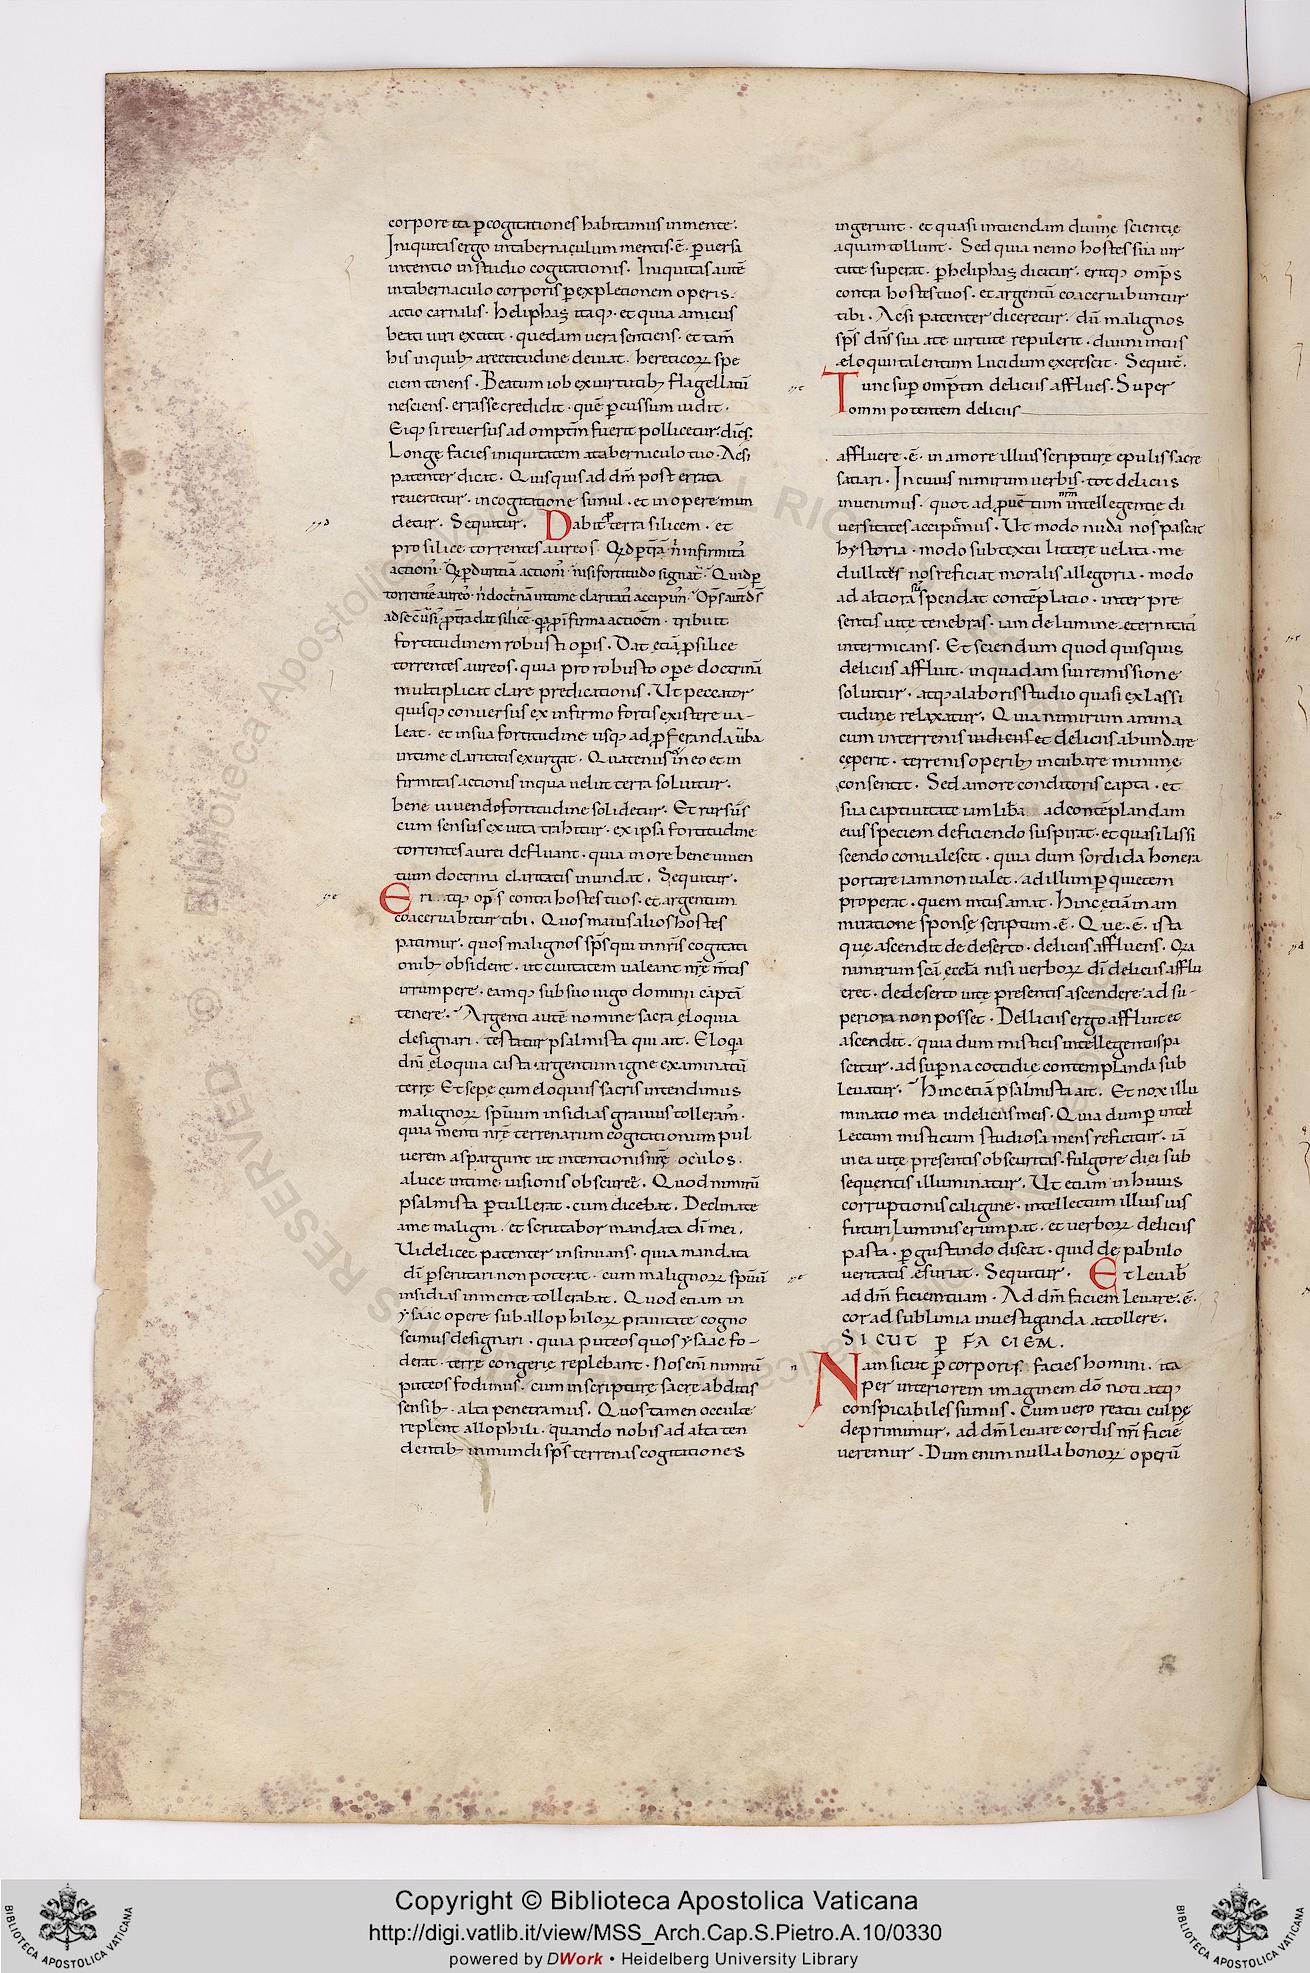 corpore ita ꝑ cogitationes habitamus in mente.
Iniquitas ergo in tabernaculum mentis .ē. ꝑuersa
intentio in studio cogitationis. Iniquitas autē
in tabernaculo corporis ꝑ expletionem operis.
actio carnalis. heliphaz itaq; et quia amicus
beati uiri extitit. quedam uera sentiens. et tam̄
his in quib; a rectitudine deuiat. hereticoꝝ spe
ciem tenens. Beatum iob ex uirtutib; flagellatū
nesciens. errasse credidit. quē ꝑcussum uidit.
Eiq; si reuersus ad omp̄tm̄ fuerit pollicetur. dic̄s.
Longe facies iniquitatem a tabernaculo tuo. Acsi
patenter dicat. Quisquis ad dm̄ post errata
reuertitur. in cogitatione simul. et in opere mun
detur. Sequitur. Dabit ꝓ terra silicem. et
pro silice torrentes aureos.
fortitudinem robusti oꝑis. Dat etiā ꝓ silice
torrentes aureos. quia pro robusto oꝑe doctrinā
multiplicat clare predicationis. Ut peccator
quisq; conuersus ex infirmo fortis existere ua-
leat. et in sua fortitudine usq; ad ꝓferenda ūba
intime claritatis exurgat. Quatenus in eo et in
firmitas actionis in qua uelut terra soluitur.
bene uiuendo fortitudine solidetur. Et rursūs
cum sensus ex uita trahitur. ex ipsa fortitudine
torrentes aurei defluant. quia in ore bene uiuen
tium doctrina claritatis inundat. Sequitur.
Eritq; op̄s contra hostes tuos. et argentum
coaceruabitur tibi. Quos maius alios hostes
patimur. quos malignos sp̄s qui in nr̄is cogitati
onib; obsident. ut ciuitatem ualeant nr̄ę m̄tis
irrumpere. eamq; sub suo iugo dominii captā
tenere. Argenti autē nomine sacra eloquia
designari. testatur psalmista qui ait. Eloqa
dn̄i eloquia casta. argentum igne examinatū
terrę. Et sepe cum eloquiis sacris intendimus
malignoꝝ spūum insidias grauius tolleram.
quia menti nr̄ę terrenarum cogitationum pul
uerem aspargunt ut intentionis nr̄ę oculos.
a luce intime uisionis obscuret. Quod nimirū
psalmista ꝑtullerat. cum dicebat. Declinate
a me maligni. et scrutabor mandata dī mei.
Uidelicet patenter insinuans. quia mandata
dī ꝑscrutari non poterat. cum malignoꝝ spūū
insidias in mente tollerabat. Quod etiam in
ysaac opere sub allophiloꝝ prauitate cogno
scimus designari. quia puteos quos ysaac fo-
derat. terrę congerie replebant. Nos eni nimirū
puteos fodimus. cum in scripturę sacre abditis
sensib; alta penetramus. Quos tamen occulte
replent allophili. quando nobis ad alta ten
dentib; inmundi sp̄s terrenas cogitationes
ingerunt. et quasi inuendam diuinę scientię
aquam tollunt. Sed quia nemo hostes sua uir
tute superat. ꝑ heliphaz dicitur. eritq; omp̄s
contra hostes tuos. et argentū coaceruabuntur
tibi. Acsi patenter diceretur. dū malignos
sp̄s dn̄s sua a te uirtute repulerit. diuini intus
eloqui talentum lucidum excrescit. Sequit̄.
Tunc suꝑ omp̄tm̄ deliciis afflues. Super
omnipotentem deliciis
affluere .ē. in amore illius scripturę epulis sacre
satiari. In cuius nimirum uerbis. tot deliciis
inuenimus. quot ad ꝓuectum nr̄m intellegentie di
uersitates accipimus. Ut modo nuda nos pascat
hystoria. modo sub textu littere uelata. me
dullitēs nos reficiat moralis allegoria. modo
ad altiora suspendat contēplatio. inter pre
sentis uitę tenebras. iam de lumine eternitati
intermicans. Et sciendum quod quisquis
deliciis affluit. in quadam sui remissione
soluitur. atq; a laboris studio quasi ex lassi
tudine relaxatur. Quia nimirum anima
cum internis diuiciis et deliciis abundare
cęperit. terrenis operib; incubare minime
consentit. Sed amore conditoris capta. et
sua captiuitate iam lib̄a ad contēplandam
eius speciem deficiendo suspirat. et quasi lassi
scendo conualescit. quia dum sordida honera
portare iam non ualet. ad illum ꝑ quietem
properat. quem intus amat. Hinc etiā in am
miratione sponsę scriptum .ē. Que .ē. ista
quę ascendit de deserto. deliciis affluens. Qa
nimirum scā ęcclā nisi uerboꝝ dī deliciis afflu
eret. de deserto uitę presentis ascendere ad su-
periora non posset. Deliciis ergo affluit et
ascendit. quia dum misticis intellegentiis pa
scitur. ad suꝑna cottidie contemplanda sub
leuatur. Hinc etiā psalmista ait. Et nox illu
minatio mea in deliciis meis. Quia dum ꝑ intel
lectum misticum studiosa mens reficitur. iā
in ea uitę presentis obscuritas. fulgore diei sub
sequentis illuminatur. Ut etiam in huius
corruptionis caligine. intellectum illius uis
futuri luminis erumpat. et uerboꝝ deliciis
pasta. ꝑgustando discat. quid de pabulo
ueritatis esuriat. Sequitur. Et leuab̄
ad dm̄ faciem tuam. Ad dm̄ faciem leuare .ē.
cor ad sublimia inuestiganda attollere.
SICUT Ꝑ FACIEM.
Nam sicut ꝑ corporis. facies homini. ita
per interiorem imaginem dō noti atq;
conspicabiles sumus. Cum uero reatu culpę
deprimimur. ad dm̄ leuare cordis nr̄i faciē
ueremur. Dum enim nulla bonoꝝ operū
Copyright © Biblioteca Apostolica Vaticana
http://digi.vatlib.it/view/MSS_Arch.Cap.S.Pietro.A.10/0330
powered by DWork • Heidelberg University Library